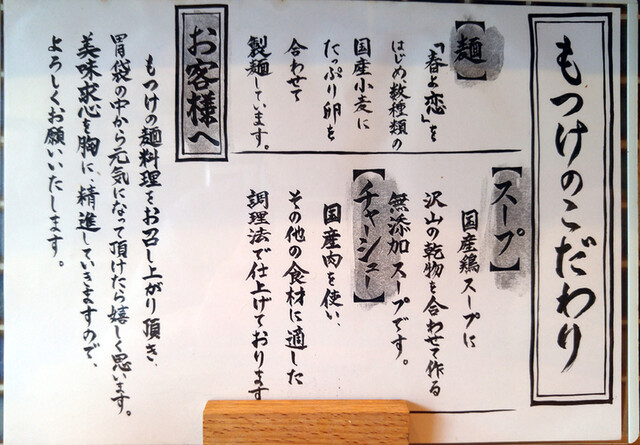 もつけのこだわり
【麺】
「春よ恋」を
はじめ数種類の
国産小麦に
たっぷり卵を
合わせて
製麺しています。
【スープ】
国産鶏スープに
沢山の乾物を合わせて作る
無添加スープです。
【チャーシュー】
国産肉を使い、
その他の食材に適した
調理法で仕上げております
お客様へ
もつけの麺料理をお召し上がり頂き、
胃袋の中から元気になって頂けたら嬉しく思います。
美味求心を胸に、精進していきますので、
よろしくお願いいたします。